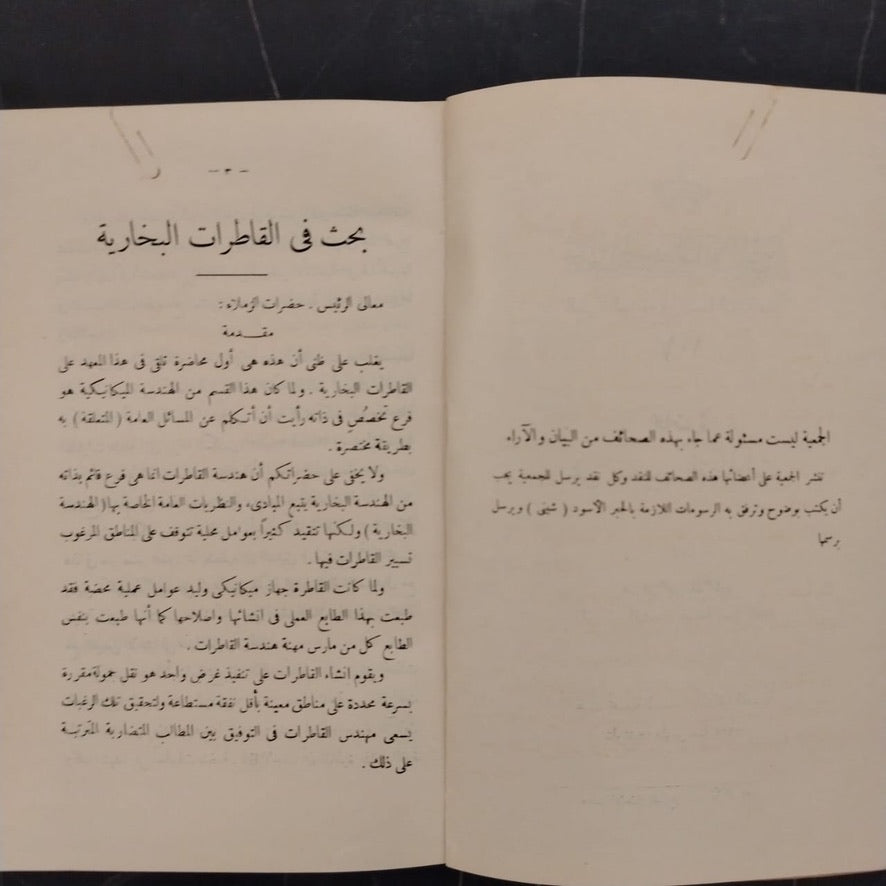 الجمعية ليست مسئولة عما جاء بهذه الصحائف من البيان والآراء
تنشر الجمعية على أعضائها هذه الصحائف للنقد وكل نقد يرسل للجمعية يجب
أن يكتب بوضوح وترفق به الرسومات اللازمة بالحبر الأسود ( شينى ) ويرسل
برسمها
— ٣ —
بحث فى القاطرات البخارية
معالى الرئيس . حضرات الزملاء :
مقدمة
يغلب على ظنى أن هذه هى أول محاضرة تلقى فى هذا المعهد على
القاطرات البخارية . ولما كان هذا القسم من الهندسة الميكانيكية هو
فرع تخصص فى ذاته رأيت أن أتكلم عن المسائل العامة ( المتعلقة ) به
بطريقة مختصرة .
ولا يخفى على حضراتكم أن هندسة القاطرات انما هى فرع قائم بذاته
من الهندسة البخارية يتبع المبادىء والنظريات العامة الخاصة بها ( الهندسة
البخارية ) ولكنها تتقيد كثيراً بعوامل محلية تتوقف على المناطق المرغوب
تسيير القاطرات فيها .
ولما كانت القاطرة جهاز ميكانيكى وليد عوامل عملية محضة فقد
طبعت بهذا الطابع العملى فى انشائها واصلاحها كما أنها طبعت بنفس
الطابع كل من مارس مهنة هندسة القاطرات .
ويقوم انشاء القاطرات على تنفيذ غرض واحد هو نقل حمولة مقررة
بسرعة محددة على مناطق معينة بأقل نفقة مستطاعة ولتحقيق تلك الرغبات
يسعى مهندس القاطرات فى التوفيق بين المطالب المتضاربة المترتبة
على ذلك .